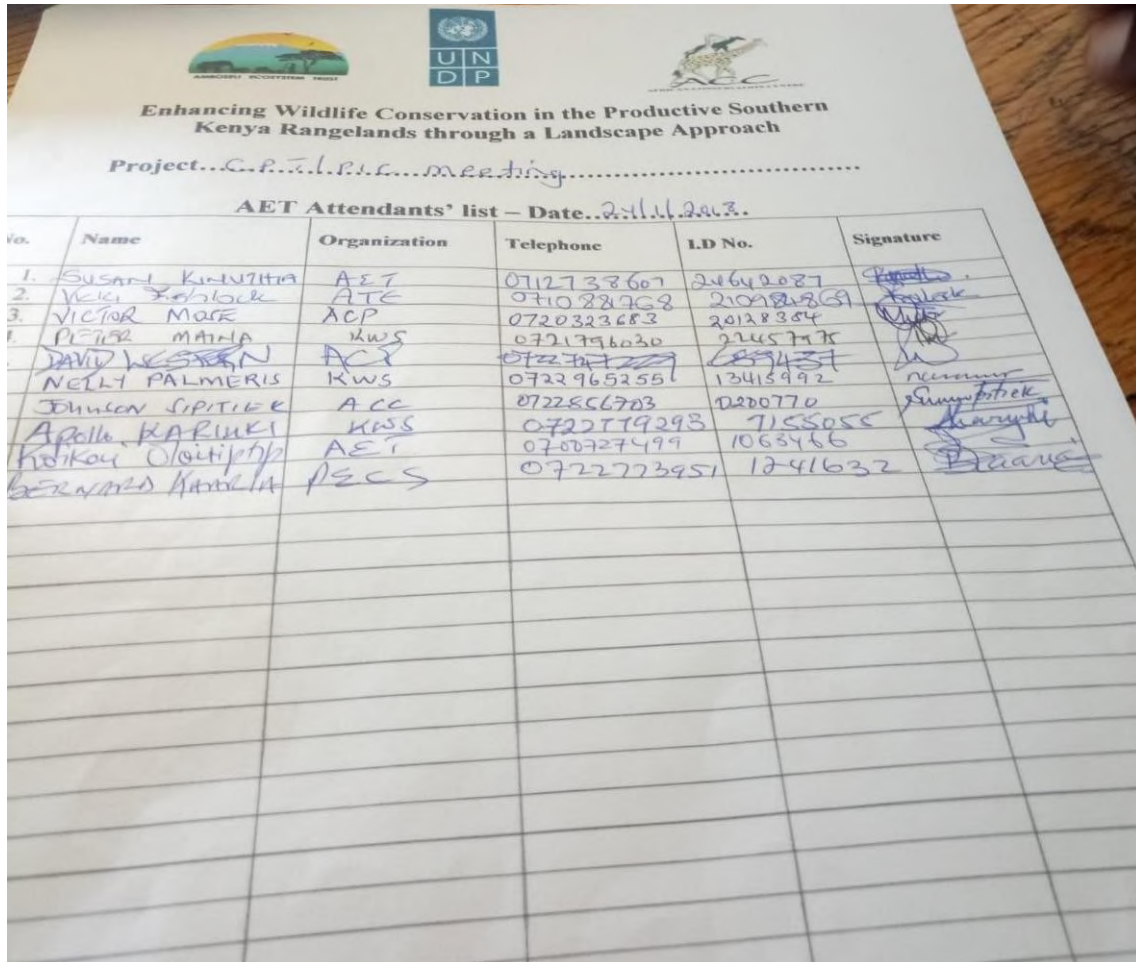 AMBOSELI ECOSYSTEM TRUST
UN
DP
ACC
AFRICAN CONSERVATION CENTRE
Enhancing Wildlife Conservation in the Productive Southern
Kenya Rangelands through a Landscape Approach
Project... meeting
AET Attendants' list – Date..
No. Name Organization Telephone I.D No. Signature
1. SUSAN KINUTHIA AET 0712738607 24642087
2. Vicki ATE
3. VICTOR MOSE ACP 0720323683 20128384
PETER MAINA KWS 0721796030
DAVID WESTERN ACP
NELLY PALMERIS KWS 0722965255 13415992
JOHNSON SIPITIEK ACC 0722856703 0200770
Apollo KARIUKI KWS 0722779293 7155055
AET 0700727499 1063466
BERNARD KAARIA PECS 0722773951 1241632